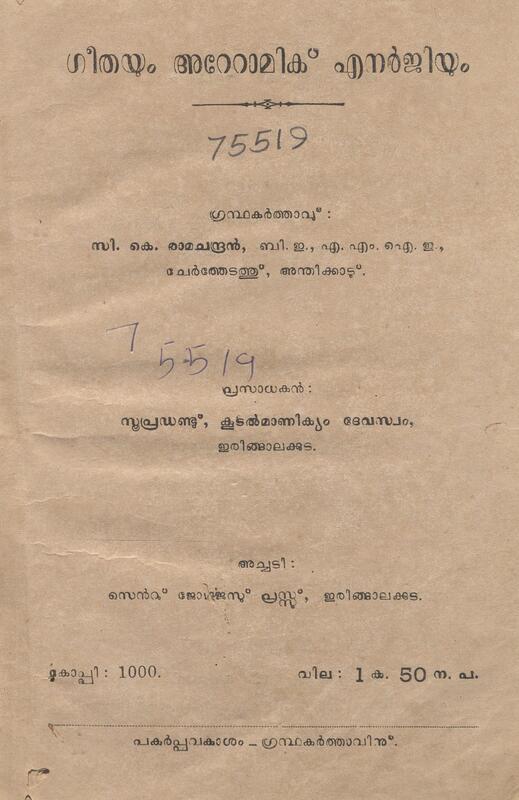 ഗീതയും അറേറാമിക് എനർജിയും
75519
ഗ്രന്ഥകർത്താവ്:
സി. കെ. രാമചന്ദ്രൻ, ബി. ഇ., എ. എം. ഐ. ഇ.,
ചേർത്തേടത്തു്, അന്തിക്കാട്.
7
5519
പ്രസാധകൻ:
സൂപ്രഡണ്ടു്, കൂടൽമാണിക്യം ദേവസ്വം,
ഇരിങ്ങാലക്കുട.
അച്ചടി:
സെൻറ് ജോർജ്ജസ് പ്രസ്സ്, ഇരിങ്ങാലക്കുട.
കോപ്പി: 1000. വില: 1 ക. 50 ന. പ.
പകർപ്പവകാശം – ഗ്രന്ഥകർത്താവിനു്.